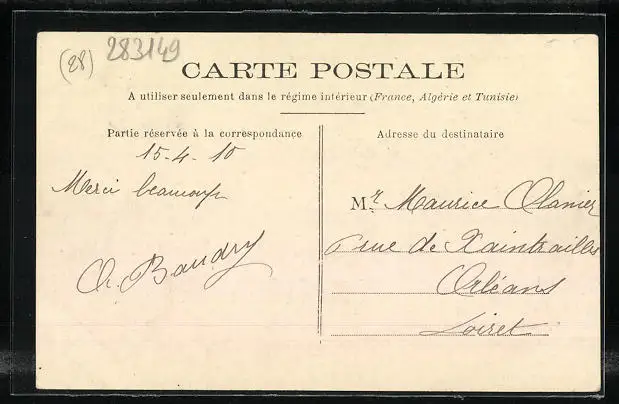 (28) 283149
CARTE POSTALE
A utiliser seulement dans le régime intérieur (France, Algérie et Tunisie)
Partie réservée à la correspondance
15-4-10
Merci beaucoup
Baudry
Adresse du destinataire
Mr. Maurice
rue de Xaintrailles
Orléans
Loiret